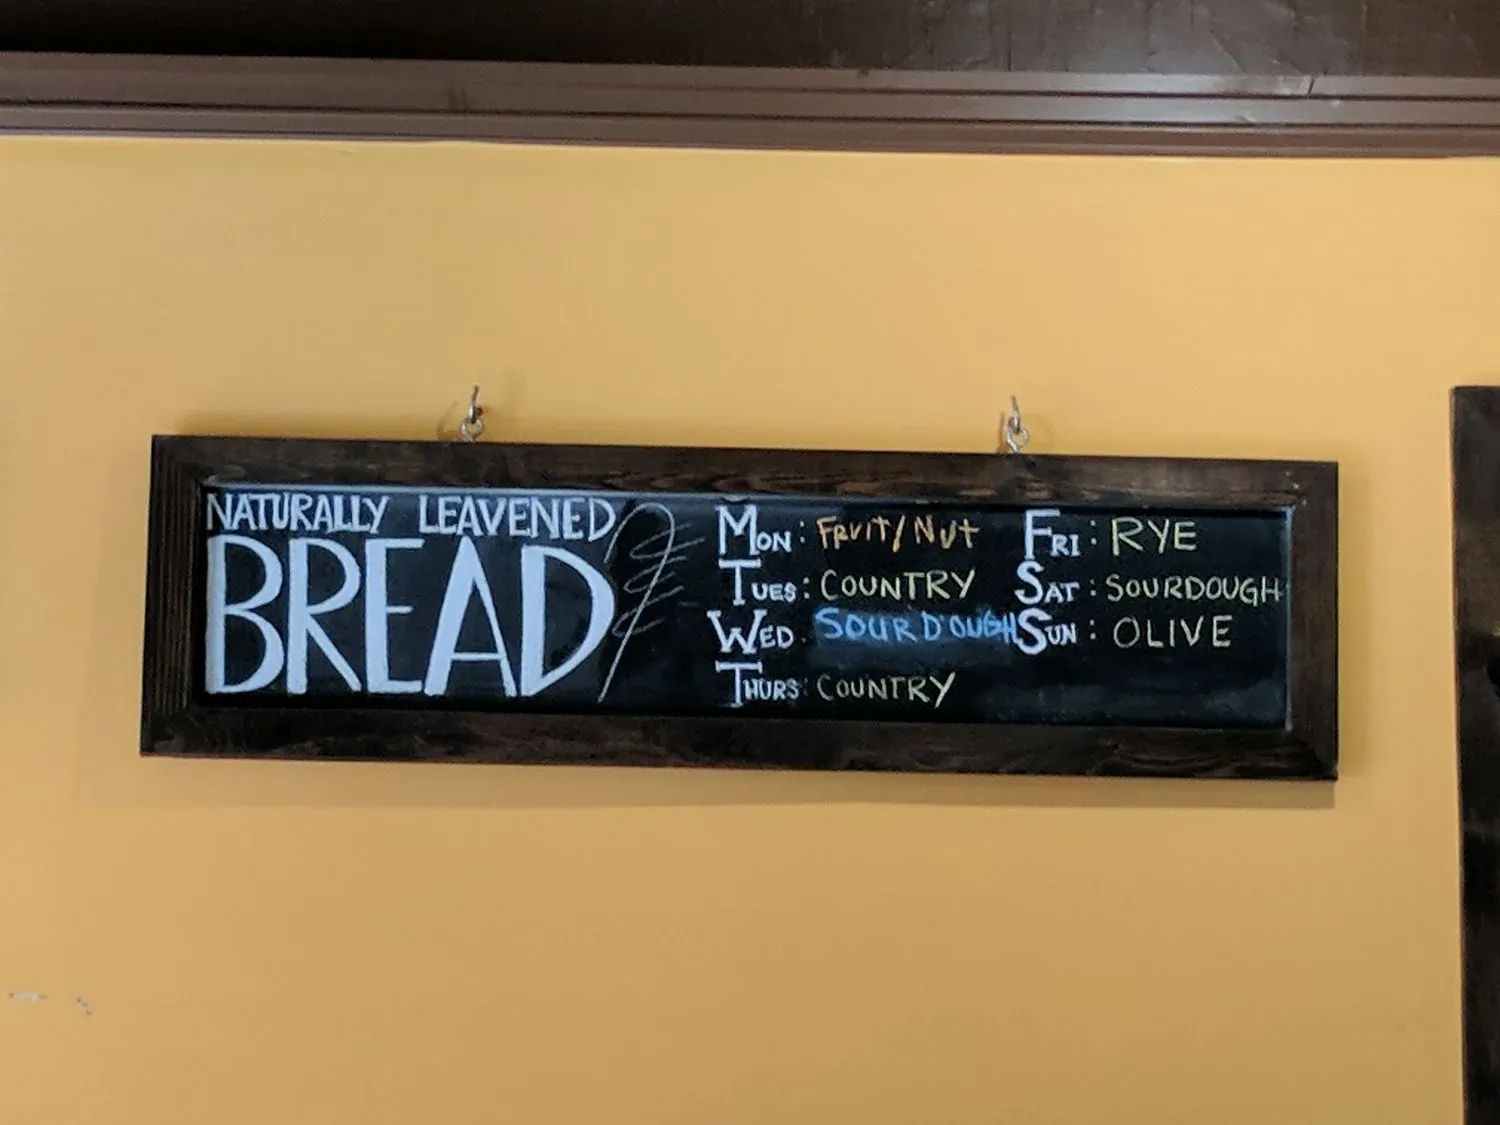 NATURALLY LEAVENED
BREAD
MON: FRUIT/NUT
TUES: COUNTRY
WED: SOURDOUGH
THURS: COUNTRY
FRI: RYE
SAT: SOURDOUGH
SUN: OLIVE